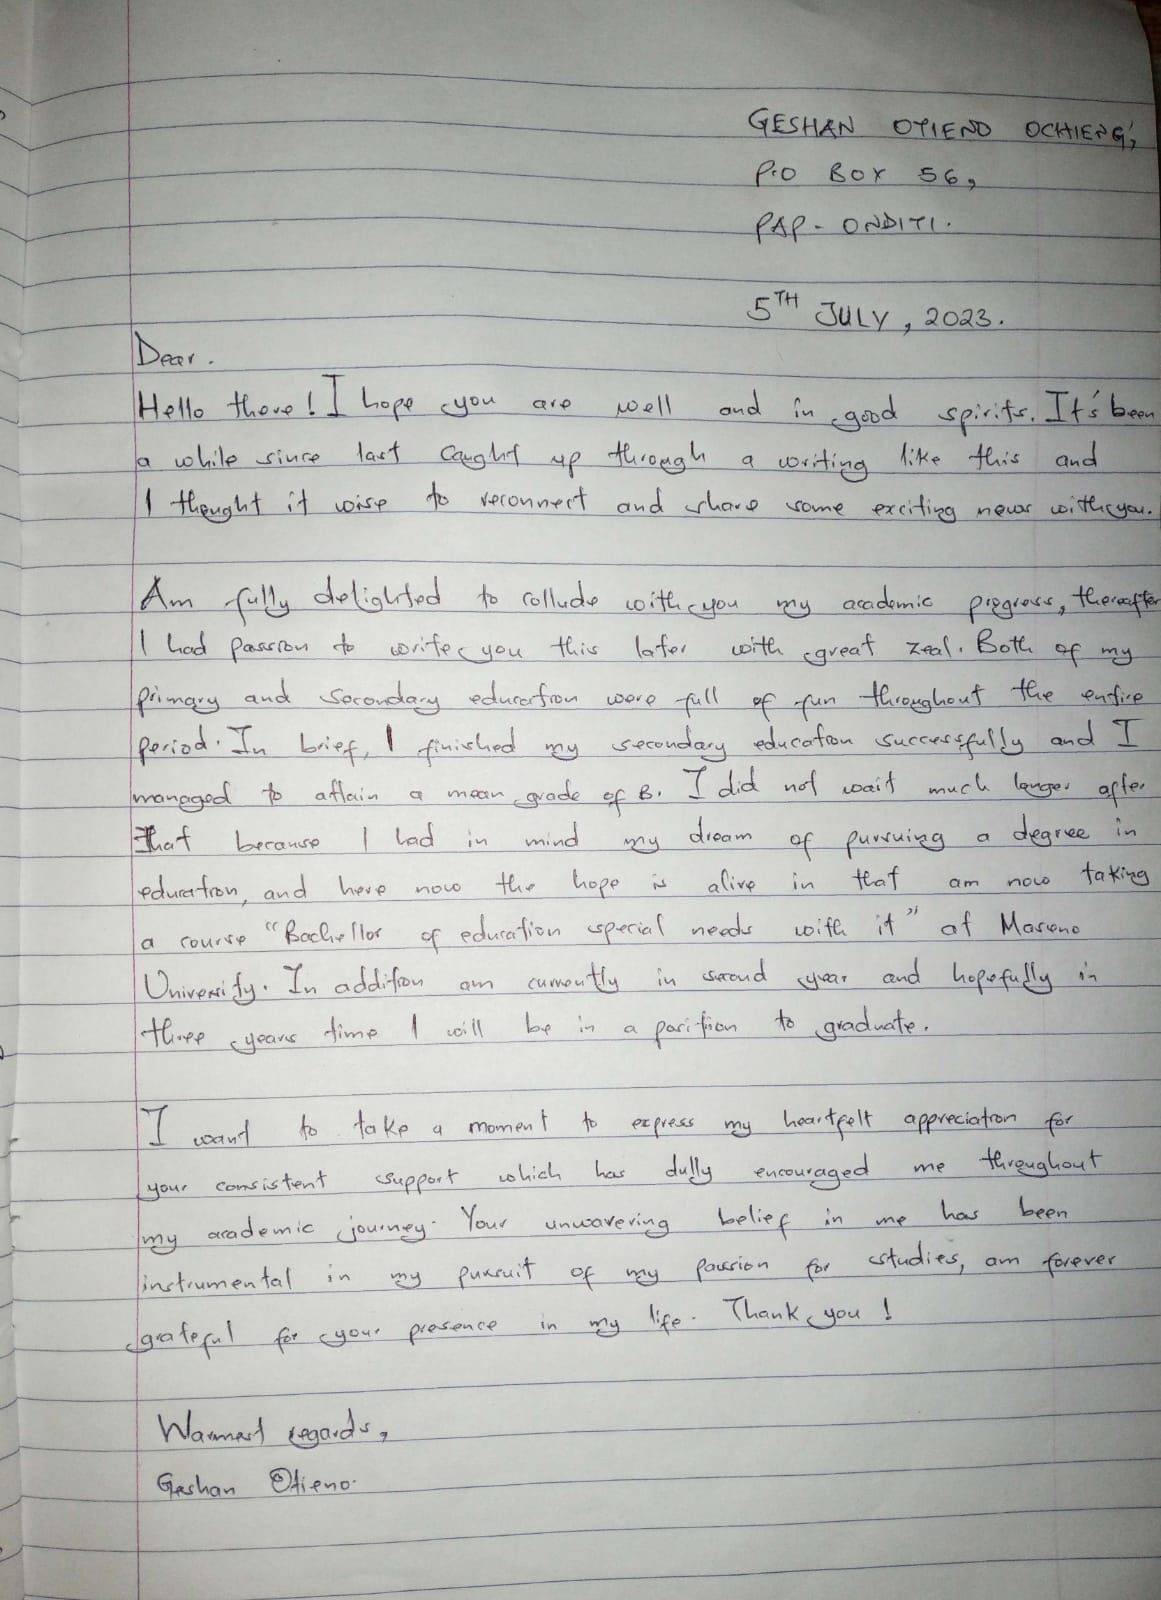 GESHAN OTIENO OCHIENG',
P.O BOX 56,
PAP- ONDITI.
5TH JULY, 2023.
Dear.
Hello there! I hope you are well and in good spirits. It's been
a while since last caught up through a writing like this and
I thought it wise to reconnect and share some exciting news with you.
Am fully delighted to collude with you my academic progress, thereafter
I had passion to write you this later with great zeal. Both of my
primary and secondary education were full of fun throughout the entire
period. In brief, I finished my secondary education successfully and I
managed to attain a mean grade of B. I did not wait much longer after
that because I had in mind my dream of pursuing a degree in
education, and here now the hope is alive in that am now taking
a course "Bachellor of education special needs with it" at Maseno
University. In addition am currently in second year and hopefully in
three years time I will be in a position to graduate.
I want to take a moment to express my heartfelt appreciation for
your consistent support which has dully encouraged me throughout
my academic journey. Your unwavering belief in me has been
instrumental in my pursuit of my passion for studies, am forever
grateful for your presence in my life. Thank you!
Warmest regards,
Geshan Otieno.